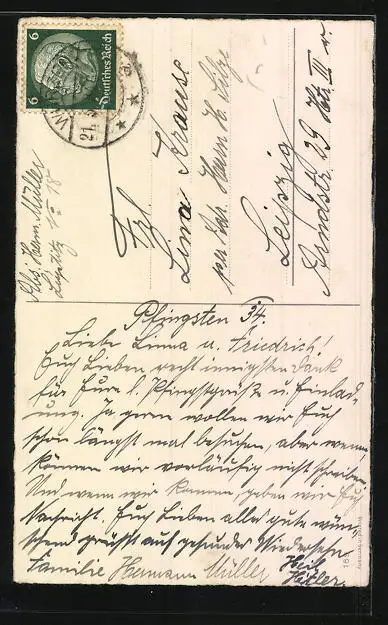 6 6
Deutsches Reich
21.
Abs. Herm. Müller
Frl.
Lina Krause
per Adr. Herrn H.
Leipzig
29 III r.
Pfingsten 34.
Liebe Linna u. Friedrich!
Euch Lieben recht innigsten Dank
für Eure l. Pfingstgrüße u. Einlad-
ung. Ja gern wollen wir Euch
schon längst mal besuchen, aber wenn
können wir vorläufig nicht schreiben.
Und wenn wir kommen, geben wir Euch
Nachricht. Euch Lieben alles gute wün-
schend grüßt auf gesundes Wiedersehn
Familie Hermann Müller
Heil
Hitler.